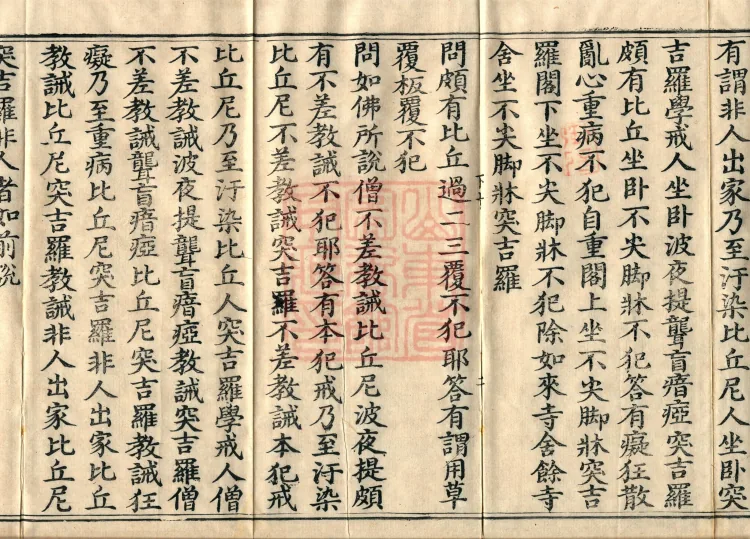 有謂非人出家乃至汙染比丘尼人坐卧突
吉羅學戒人坐卧波夜提聾盲瘖瘂突吉羅
頗有比丘坐卧不尖脚牀不犯答有癡狂散
亂心重病不犯自重閣上坐不尖脚牀突吉
羅閣下坐不尖脚牀不犯除如來寺舍餘寺
舍坐不尖脚牀突吉羅
問頗有比丘過二三覆不犯耶答有謂用草
覆板覆不犯
問如佛所說僧不差教誡比丘尼波夜提頗
有不差教誡不犯耶答有本犯戒乃至汙染
比丘尼不差教誡突吉羅不差教誡本犯戒
比丘尼乃至汙染比丘人突吉羅學戒人僧
不差教誡波夜提聾盲瘖瘂教誡突吉羅僧
不差教誡聾盲瘖瘂比丘尼突吉羅教誡狂
癡乃至重病比丘尼突吉羅非人出家比丘
教誡比丘尼突吉羅教誡非人出家比丘尼
突吉羅非人者如前說